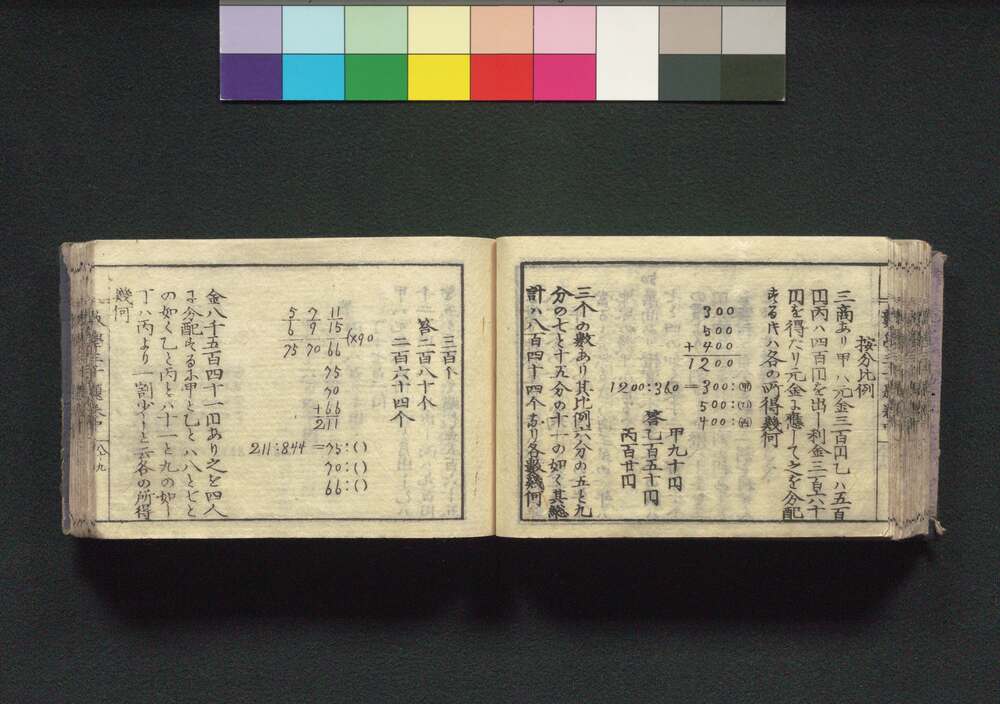 按分比例
三商あり甲ハ元金三百円乙ハ五百
円丙ハ四百円を出し利金三百六十
円を得たり元金に應して之を分配
する片ハ各の所得幾何
300
500
+400
1200
1200:360=300:(甲)
500:(乙)
400:(丙)
甲九十円
答乙百五十円
丙百廿円
三个の数あり其比例六分の五と九
分の七と十五分の十一の如く其総
計ハ八百四十四个なり各数幾何
三百个
答二百八十个
二百六十四个
5/6 7/9 11/15 (×90
75 70 66
75
70
+66
211
211:844=75:()
70:()
66:()
金八千五百四十一円あり之を四人
に分配するに甲と乙とハ八と七と
の如く乙と丙とハ十一と九の如し
丁ハ丙より一割少しと云各の所得
幾何